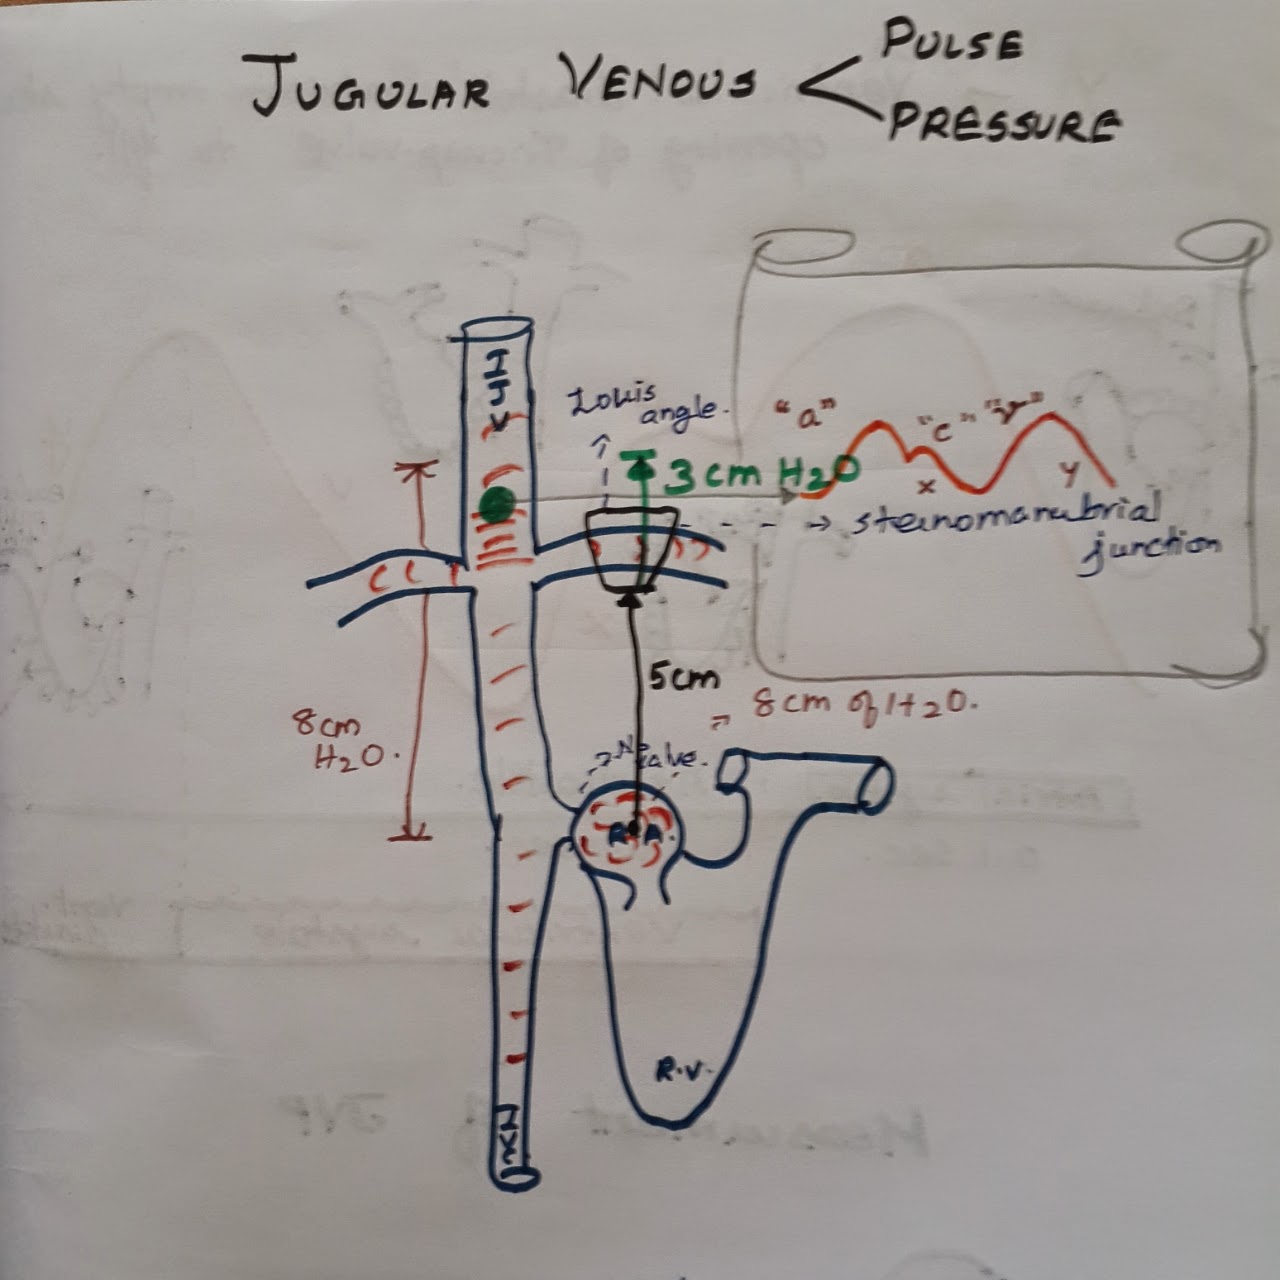 JUGULAR VENOUS
PULSE
PRESSURE
IJV
Louis
angle.
3 cm H2O
"a"
"c"
"v"
x
y
sternomanubrial
junction
5cm
8cm
H2O.
8cm of H2O.
Valve.
R.A.
R.V.